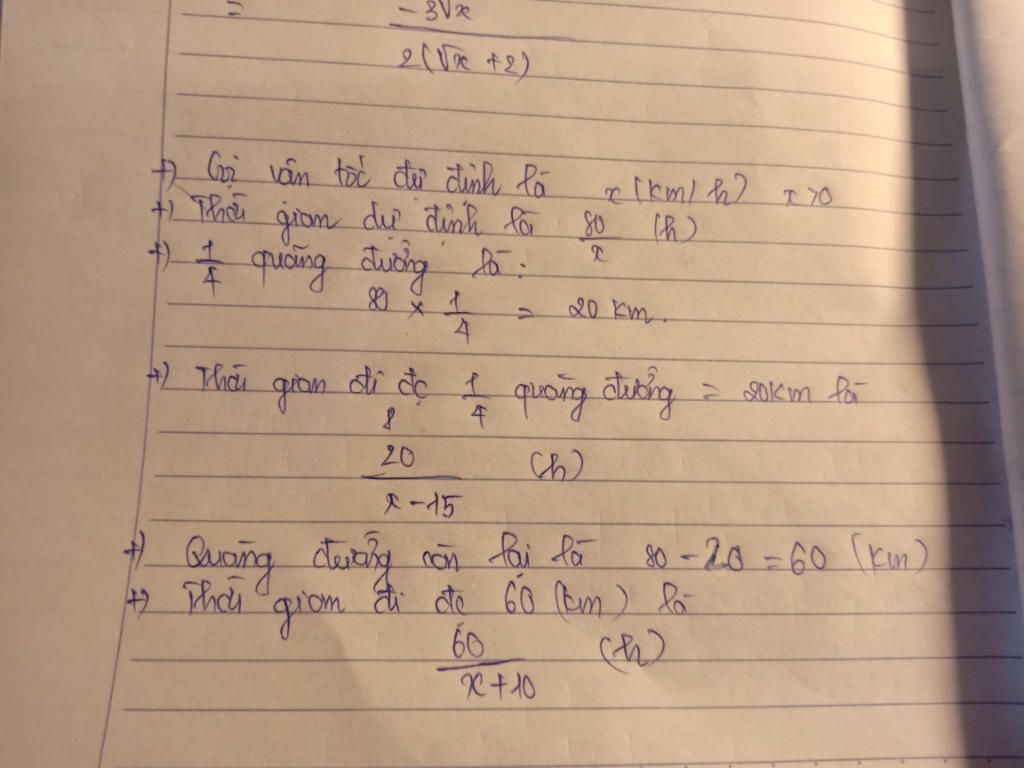 = -3√x / 2(√x + 2)
+) Gọi vận tốc dự định là x (km/h) x > 0
+) Thời gian dự định là 80/x (h)
+) 1/4 quãng đường là:
80 × 1/4 = 20 km.
+) Thời gian đi đc 1/4 quãng đường = 20km là
8
20/(x - 15) (h)
+) Quãng đường còn lại là 80 - 20 = 60 (km)
+) Thời gian đi đc 60 (km) là
60/(x + 10) (h)